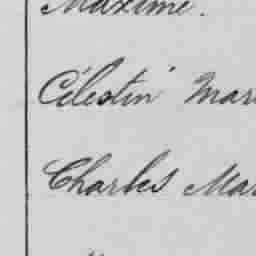 Maxime.
Célestin Mar
Charles Ma